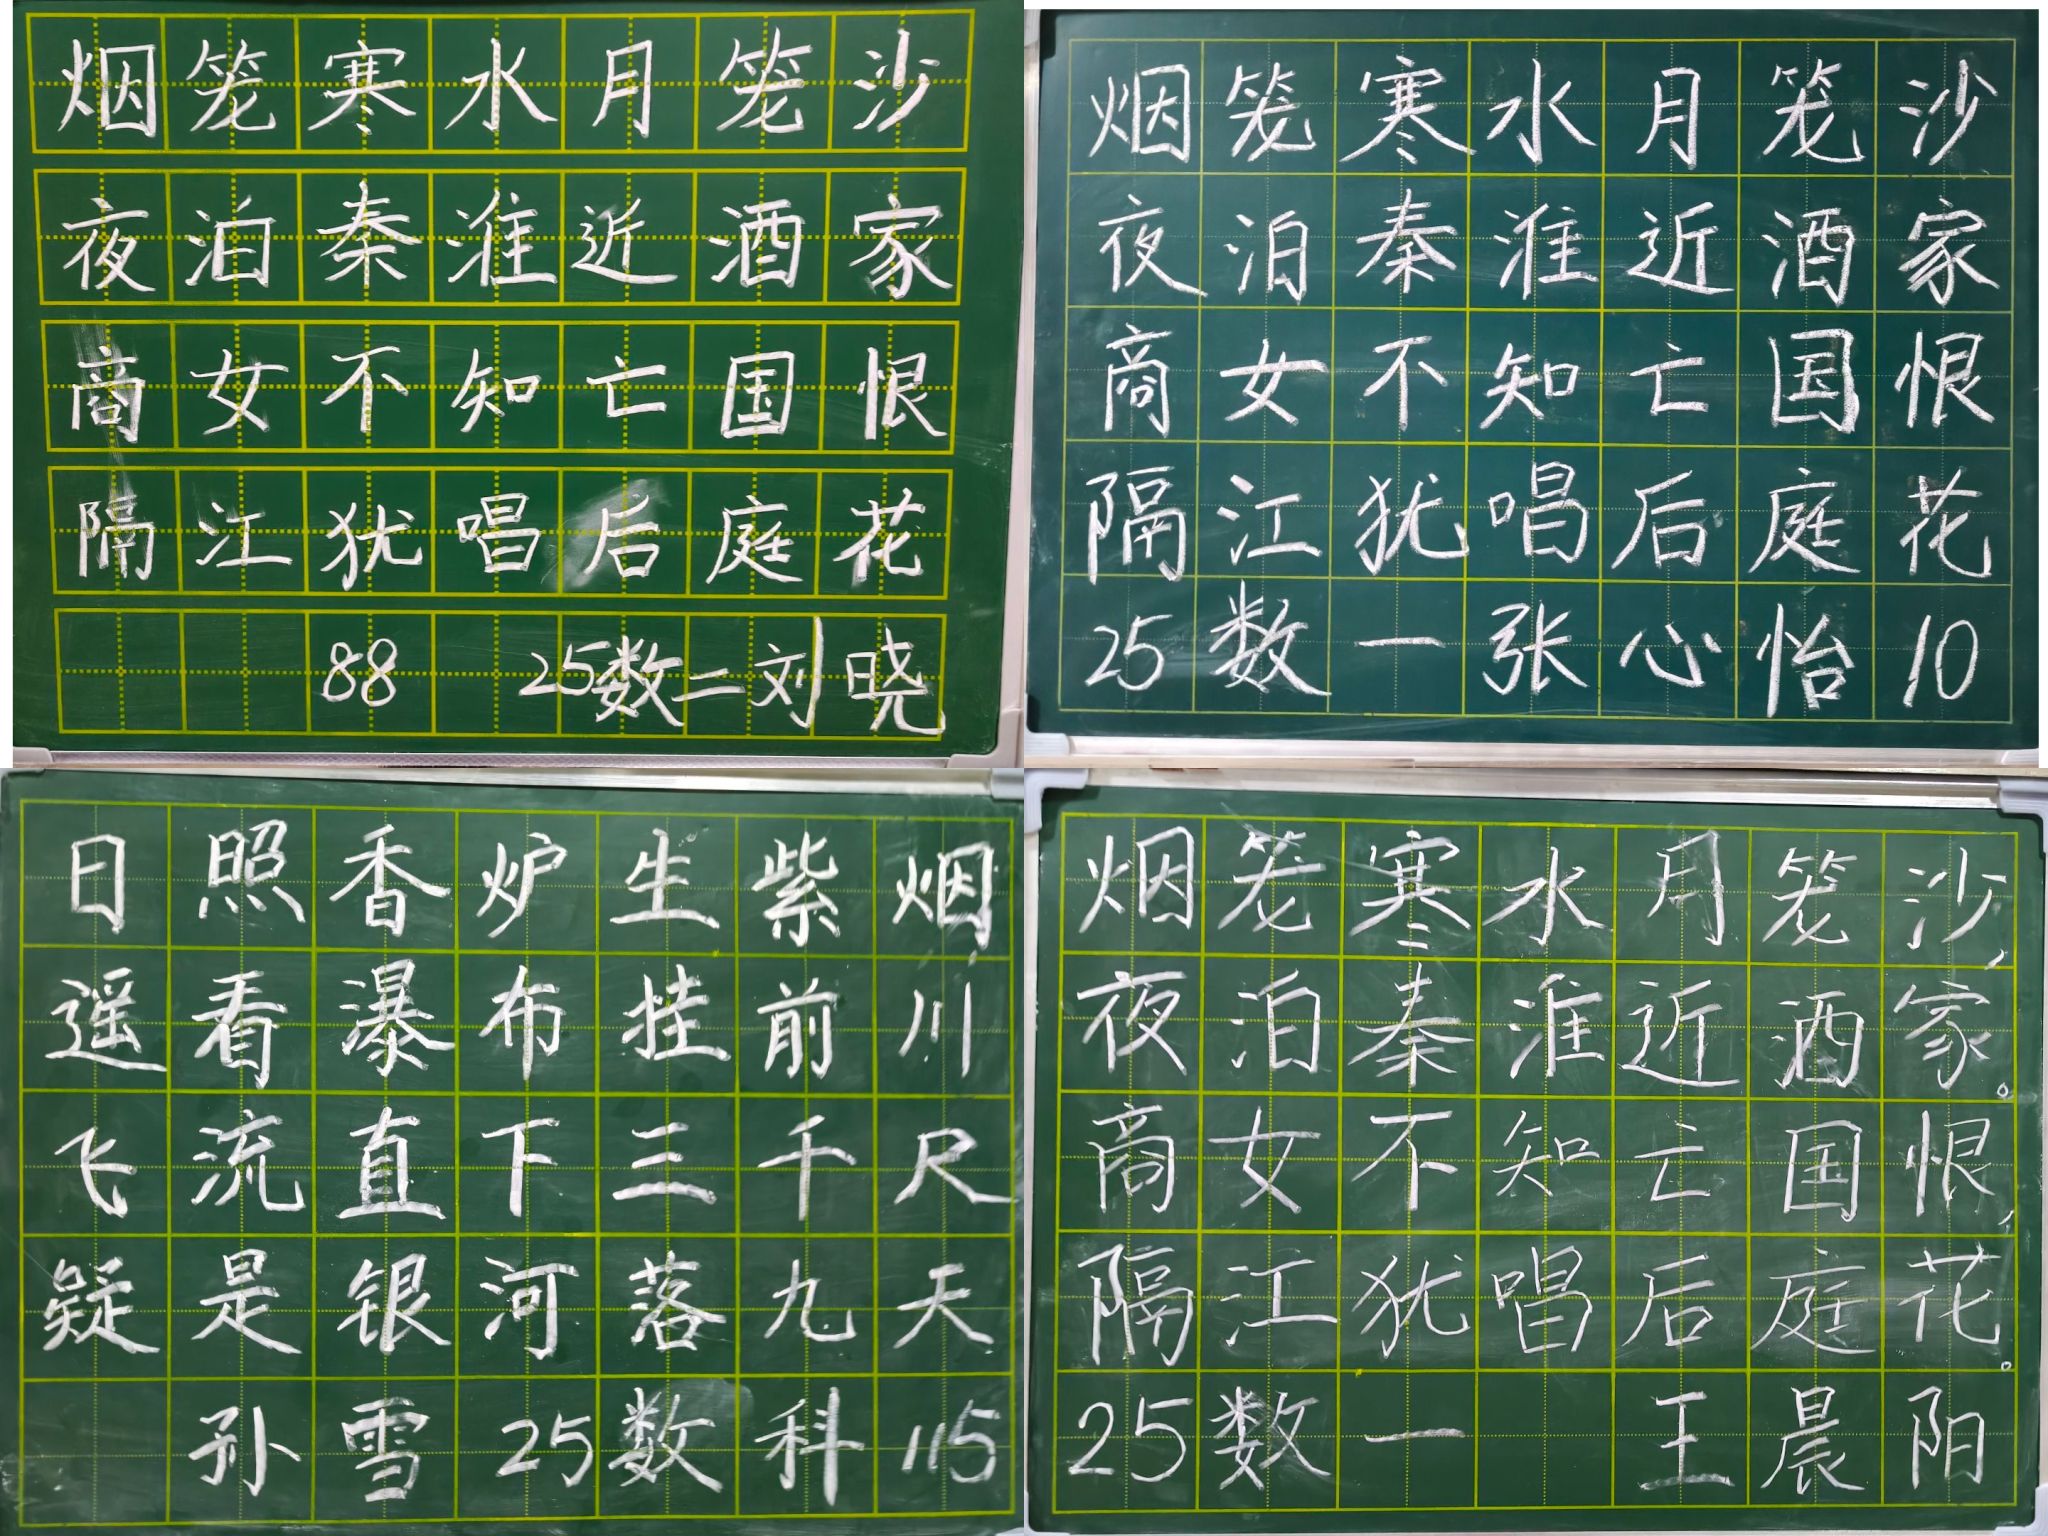 烟笼寒水月笼沙
夜泊秦淮近酒家
商女不知亡国恨
隔江犹唱后庭花
88 25数二刘晓
烟笼寒水月笼沙
夜泊秦淮近酒家
商女不知亡国恨
隔江犹唱后庭花
25数一张心怡10
日照香炉生紫烟
遥看瀑布挂前川
飞流直下三千尺
疑是银河落九天
孙雪25数科115
烟笼寒水月笼沙,
夜泊秦淮近酒家。
商女不知亡国恨,
隔江犹唱后庭花。
25数一 王晨阳